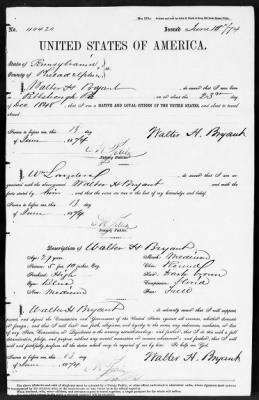 No. 40420 Issued June 18/74
UNITED STATES OF AMERICA.
State of Pennsylvania
County of Philadelphia
I, Walter H Bryant
Pittsburgh Pa on or about the 23rd day
of Dec 1848 that I am a NATIVE AND LOYAL CITIZEN OF THE UNITED STATES, and about to travel
abroad.
Sworn to before me this 13 day
of June 1874 Walter H. Bryant
Notary Public.
I, Wm
acquainted with the above-named Walter H Bryant and that the
facts stated by him are true to the best of my knowledge and belief.
Sworn to before me this 13 day
of June 1874
Notary Public.
Description of Walter H Bryant
Age: 27 years Mouth: Medium
Stature: 5 feet 10 inches, Eng. Chin: Round
Forehead: High Hair: Dark brown
Eyes: Blue Complexion: Florid
Nose: Medium Face: Full
I, Walter H Bryant do solemnly swear that I will support,
protect, and defend the Constitution and Government of the United States against all enemies, whether domestic
or foreign; and that I will bear true faith, allegiance, and loyalty to the same, any ordinance, resolution, or law
of any State, Convention, or Legislature to the contrary notwithstanding; and further, that I do this with a full
determination, pledge, and purpose, without any mental reservation or evasion whatsoever; and further, that I will
well and faithfully perform all the duties which may be required of me by law. So help me God.
Sworn to before me this 13 day
of June 1874 Walter H. Bryant
Notary Public.